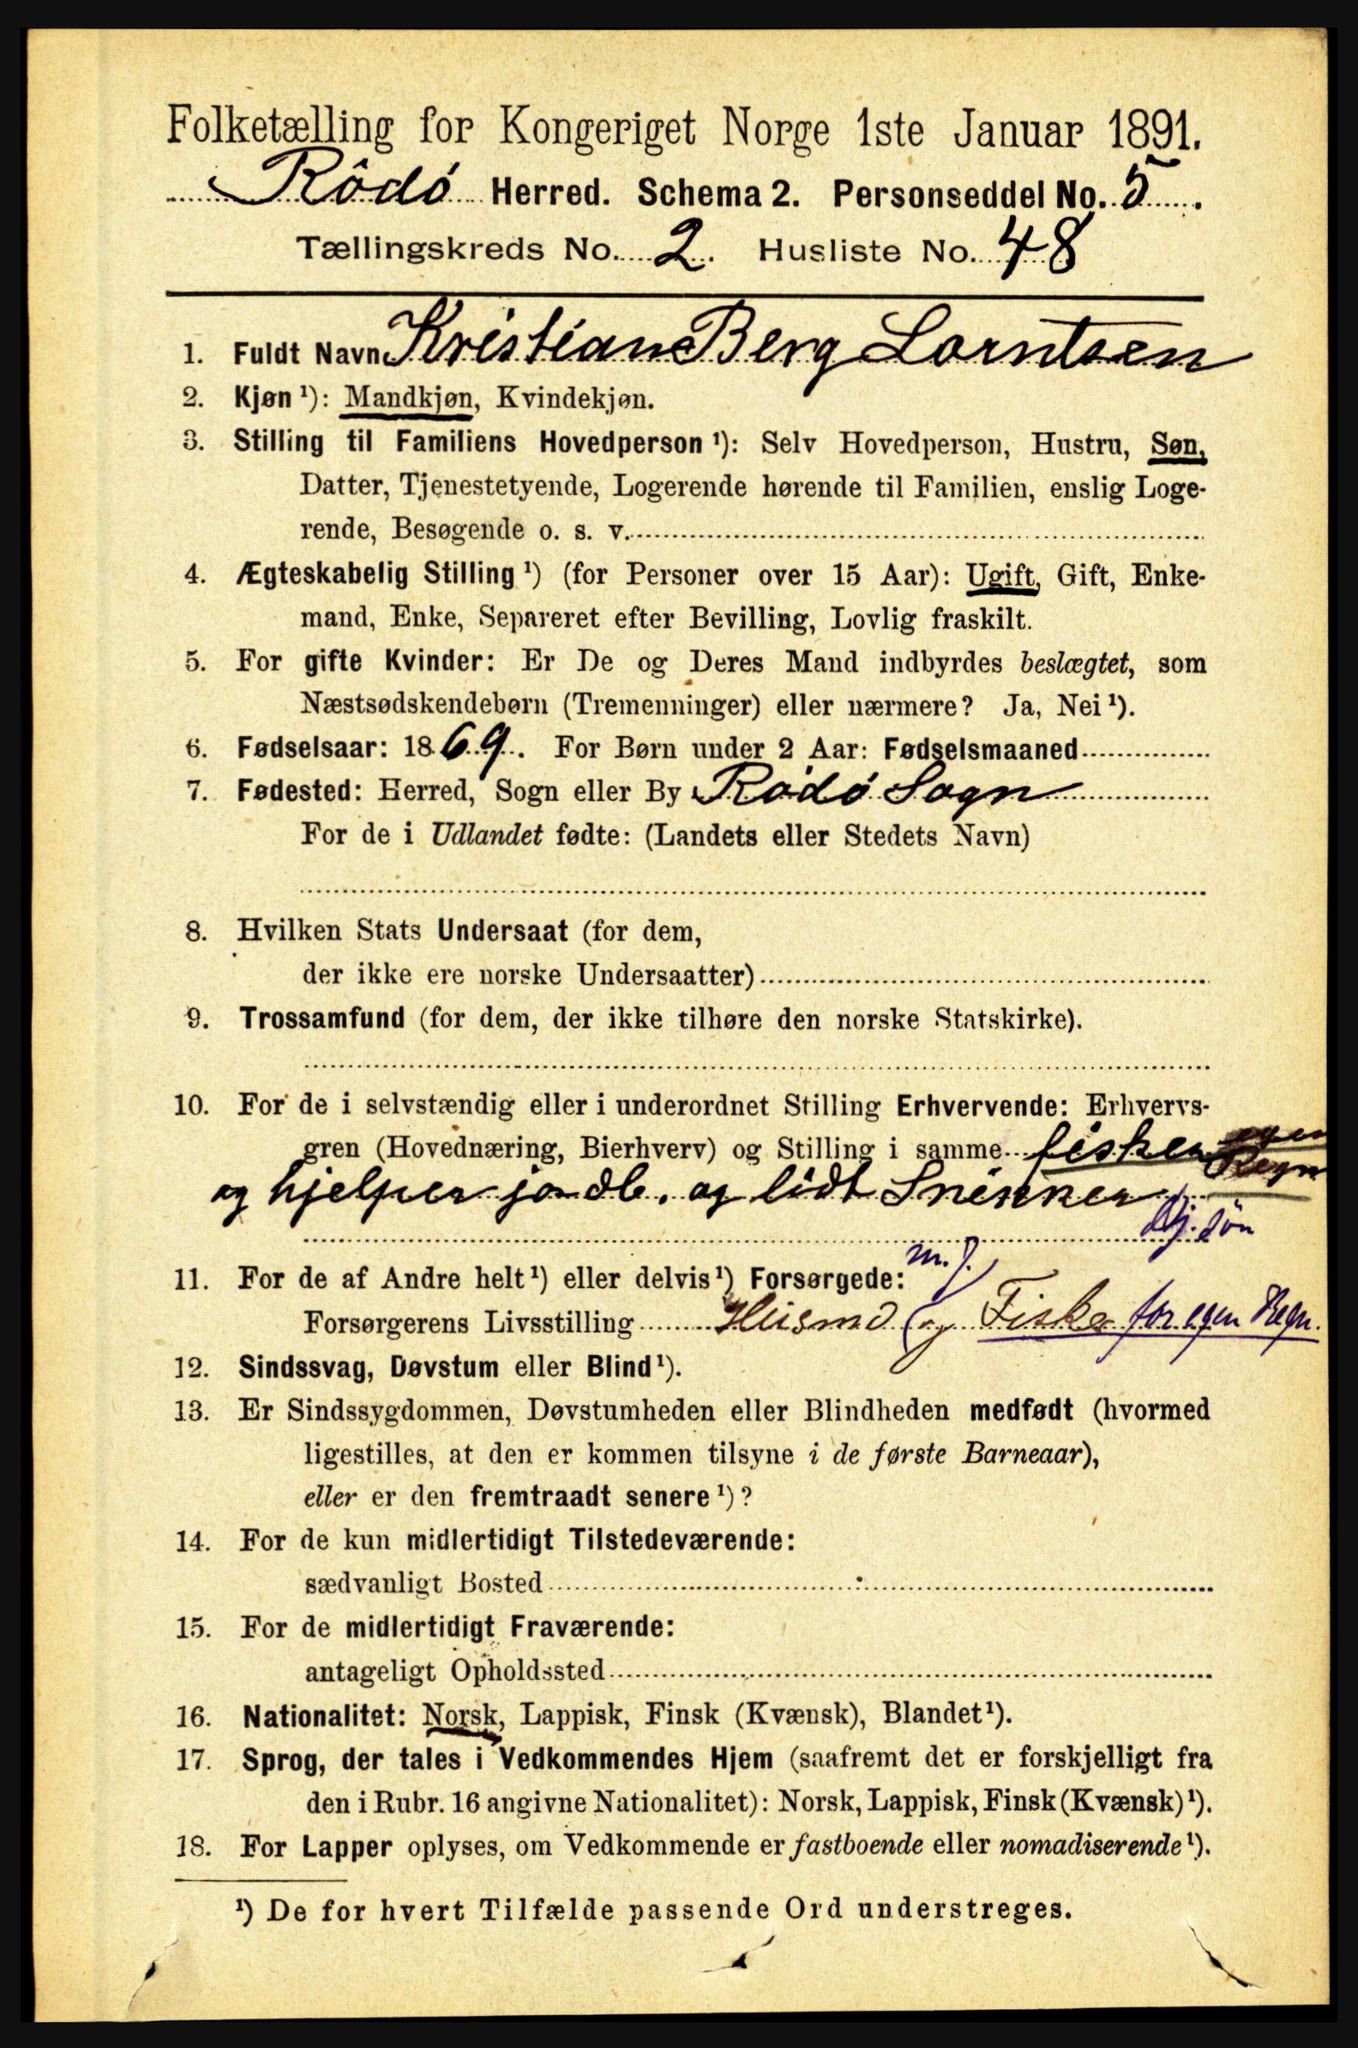 Folketælling for Kongeriget Norge 1ste Januar 1891.
Rödö Herred. Schema 2. Personseddel No. 5.
Tællingskreds No. 2. Husliste No. 48
1. Fuldt Navn Kristian Berg Lorntsen
2. Kjøn¹): Mandkjøn, Kvindekjøn.
3. Stilling til Familiens Hovedperson¹): Selv Hovedperson, Hustru, Søn,
Datter, Tjenestetyende, Logerende hørende til Familien, enslig Loge-
rende, Besøgende o. s. v.
4. Ægteskabelig Stilling¹) (for Personer over 15 Aar): Ugift, Gift, Enke-
mand, Enke, Separeret efter Bevilling, Lovlig fraskilt.
5. For gifte Kvinder: Er De og Deres Mand indbyrdes beslægtet, som
Næstsødskendebørn (Tremenninger) eller nærmere? Ja, Nei¹).
6. Fødselsaar: 1869. For Børn under 2 Aar: Fødselsmaaned
7. Fødested: Herred, Sogn eller By Rödö Sogn
For de i Udlandet fødte: (Landets eller Stedets Navn)
8. Hvilken Stats Undersaat (for dem,
der ikke ere norske Undersaatter)
9. Trossamfund (for dem, der ikke tilhøre den norske Statskirke).
10. For de i selvstændig eller i underordnet Stilling Erhvervende: Erhvervs-
gren (Hovednæring, Bierhverv) og Stilling i samme fisker egen Regn
og hjelper jordb. og lidt Snekker
Gj. sön
11. For de af Andre helt¹) eller delvis¹) Forsørgede: m. J.
Forsørgerens Livsstilling Husmd og Fisker for egen Regn.
12. Sindssvag, Døvstum eller Blind¹).
13. Er Sindssygdommen, Døvstumheden eller Blindheden medfødt (hvormed
ligestilles, at den er kommen tilsyne i de første Barneaar),
eller er den fremtraadt senere¹)?
14. For de kun midlertidigt Tilstedeværende:
sædvanligt Bosted
15. For de midlertidigt Fraværende:
antageligt Opholdssted
16. Nationalitet: Norsk, Lappisk, Finsk (Kvænsk), Blandet¹).
17. Sprog, der tales i Vedkommendes Hjem (saafremt det er forskjelligt fra
den i Rubr. 16 angivne Nationalitet): Norsk, Lappisk, Finsk (Kvænsk)¹).
18. For Lapper oplyses, om Vedkommende er fastboende eller nomadiserende¹).
¹) De for hvert Tilfælde passende Ord understreges.